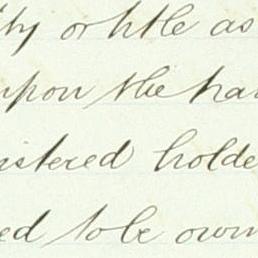 ity or title as
upon the ha
istered holde
ed to be own